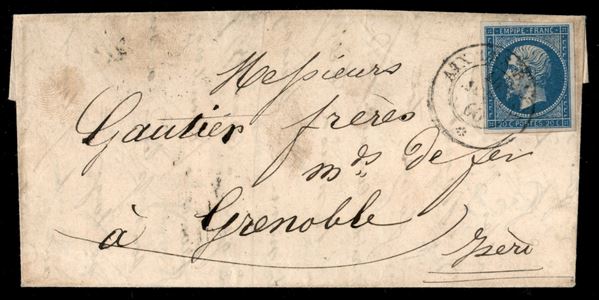 EMPIRE FRANC
20 C POSTES 20 C
AIX
60
Messieurs
Gautier frères
mds de fer
à Grenoble
Isère